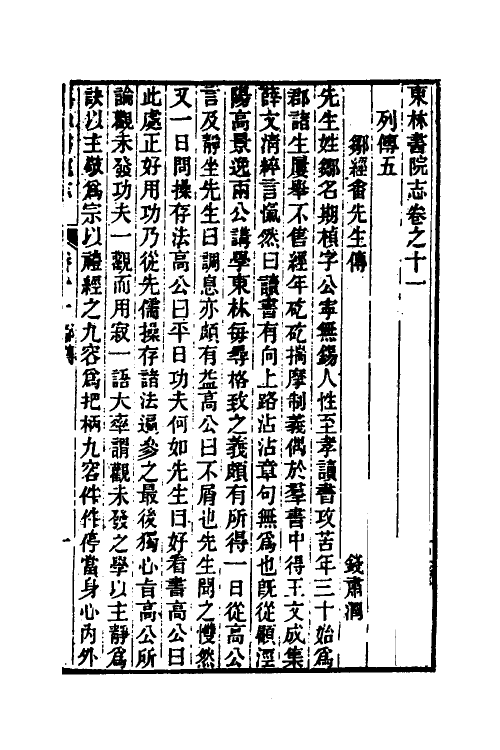 東林書院志卷之十一
列傳五
鄒經畬先生傳 錢肅潤
先生姓鄒名期楨字公寧無錫人性至孝讀書攻苦年三十始爲
郡諸生屢舉不售經年矻矻揣摩制義偶於羣書中得王文成集
薛文淸粹言愾然曰讀書有向上路沾沾章句無爲也旣從顧涇
陽高景逸兩公講學東林每尋格致之義頗有所得一日從高公
言及靜坐先生曰調息亦頗有益高公曰不屑也先生聞之憷然
又一日問操存法高公曰平日功夫何如先生曰好看書高公曰
此處正好用功乃從先儒操存諸法遍參之最後獨心肯高公所
論觀未發功夫一觀而用寂一語大率謂觀未發之學以主靜爲
訣以主敬爲宗以禮經之九容爲把柄九容件件停當身心內外